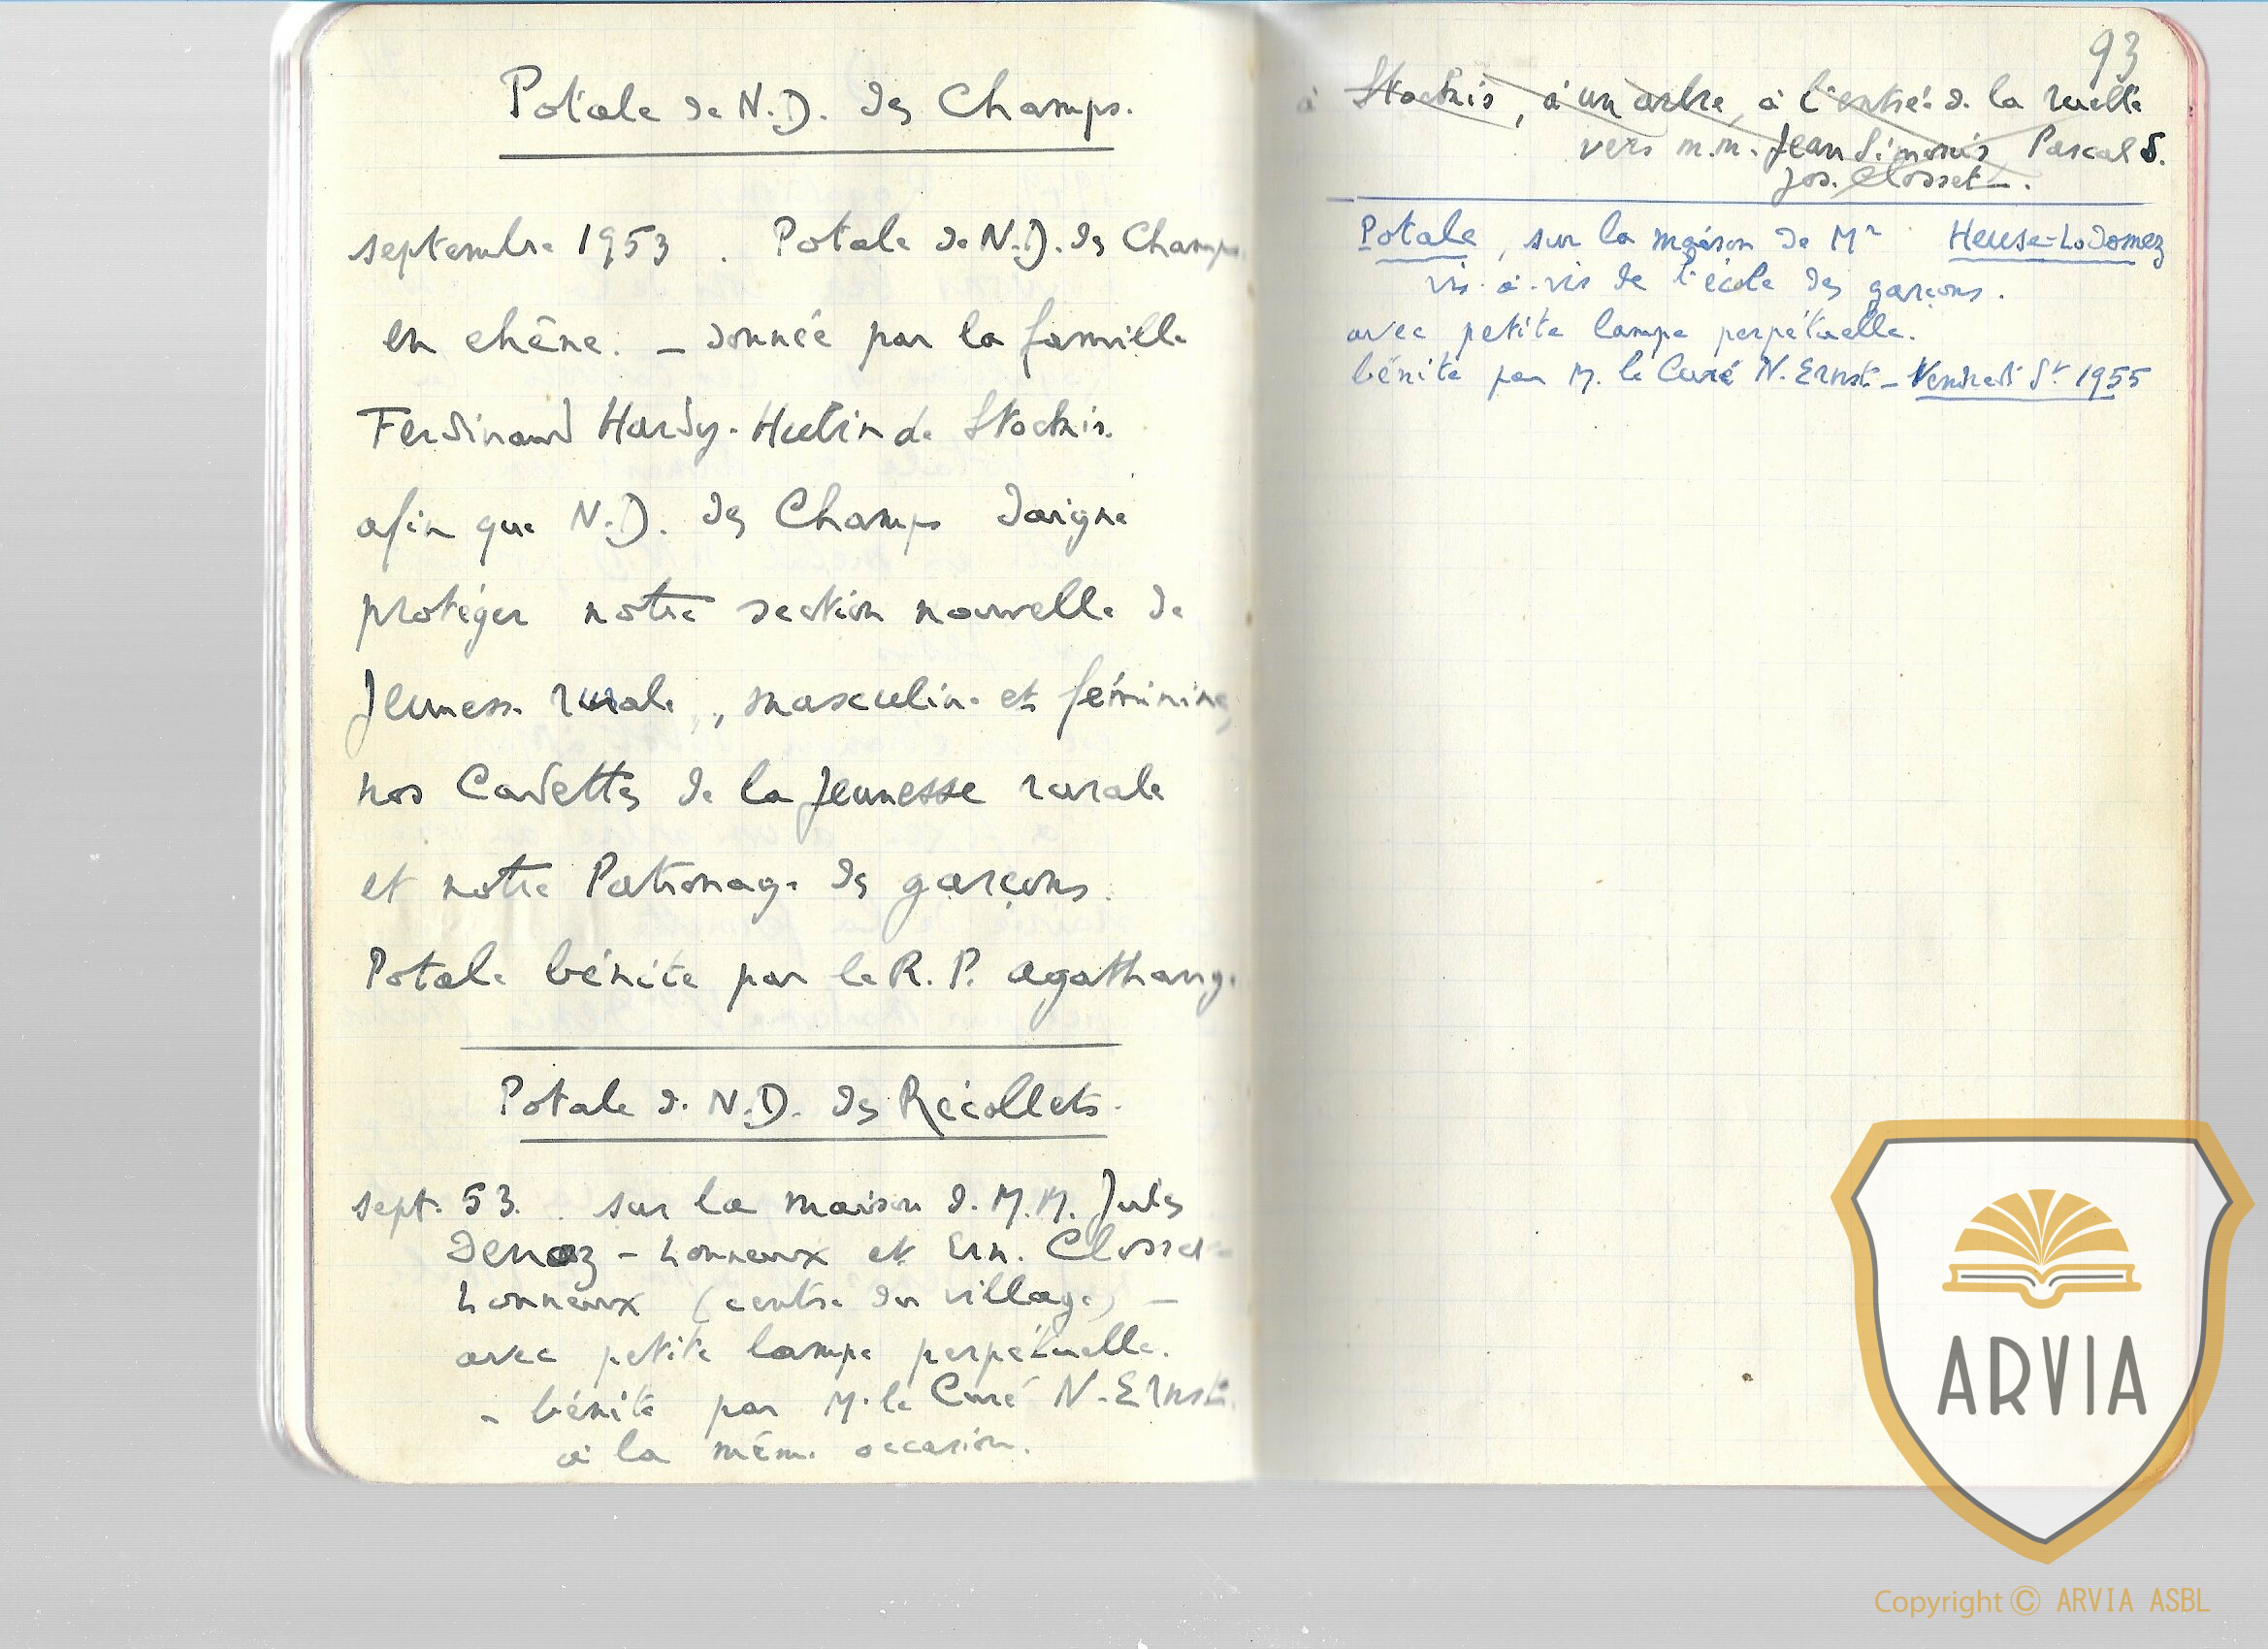 Potale de N.D. des Champs.
septembre 1953. Potale de N.D. des Champs
en chêne. – donnée par la famille
Ferdinand Hardy-Hutin de Stockis.
afin que N.D. des Champs daigne
protéger notre section nouvelle de
Jeunesse rurale, masculine et féminine,
nos Cadettes de la Jeunesse rurale
et notre Patronage des garçons.
Potale bénite par le R. P. Agathange
Potale de N.D. des Récollets.
sept. 53. sur la maison de M.M. Jules
Denoz – Lonneux et Ern. Closset-
Lonneux (centre du village) –
avec petite lampe perpétuelle.
– bénite par M. le Curé N. Ernst.
à la même occasion.
93
à Stockis, à un arbre, à l'entrée de la ruelle
vers M.M. Jean Simonis Pascal S.
Jos. Closset.
Potale, sur la maison de Mr Heuse-Lodomez
vis-à-vis de l'école des garçons.
avec petite lampe perpétuelle.
bénite par M. le Curé N. Ernst – Vendredi St 1955
ARVIA
Copyright © ARVIA ASBL